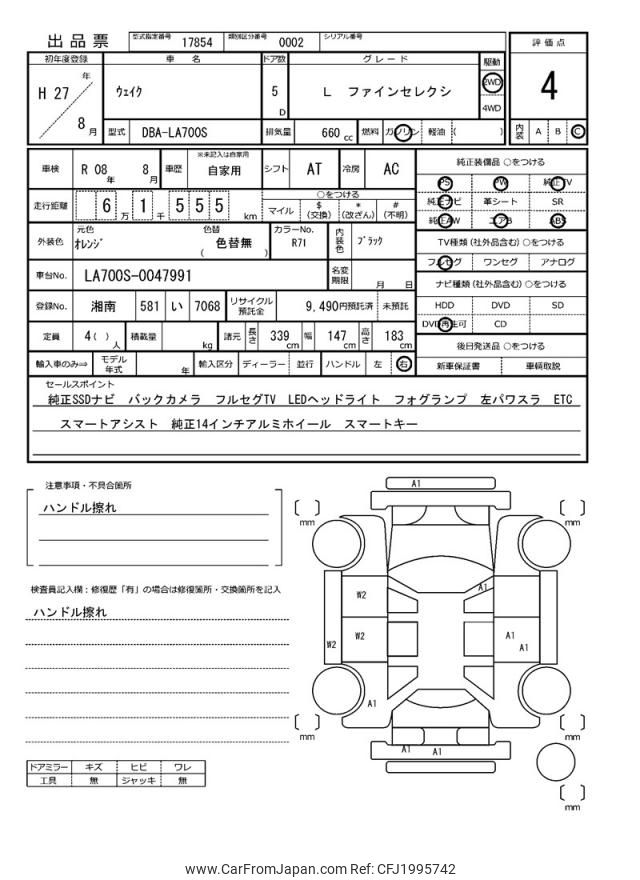 出品票 型式指定番号 17854 類別区分番号 0002 シリアル番号
評価点
4
初年度登録 車名 ドア数 グレード 駆動
H 27 年 8 月
ウェイク
5 D
L ファインセレクシ
2WD
4WD
型式 DBA-LA700S 排気量 660 cc 燃料 ガソリン 軽油 ( )
内装 A B C
車検 R 08 年 8 月 車歴 ※未記入は自家用 自家用 シフト AT 冷房 AC
走行距離 6 万 1 千 5 5 5 km
○をつける
マイル $ (交換) * (改ざん) # (不明)
外装色 元色 オレンジ 色替 ( 色替無 ) カラーNo. R71 内装色 ブラック
車台No. LA700S-0047991 名変期限 月 日
登録No. 湘南 581 い 7068 リサイクル預託金 9,490円預託済 未預託
定員 4( ) 人 積載量 kg 諸元 長さ 339 cm 幅 147 cm 高さ 183 cm
輸入車のみ⇒ モデル年式 年 輸入区分 ディーラー 並行 ハンドル 左 右
純正装備品 ○をつける
PS PW 純正TV
純正ナビ 革シート SR
純正AW エアB ABS
TV種類 (社外品含む) ○をつける
フルセグ ワンセグ アナログ
ナビ種類 (社外品含む) ○をつける
HDD DVD SD
DVD再生可 CD
後日発送品 ○をつける
新車保証書 車輌取説
セールスポイント
純正SSDナビ バックカメラ フルセグTV LEDヘッドライト フォグランプ 左パワスラ ETC
スマートアシスト 純正14インチアルミホイール スマートキー
注意事項・不具合箇所
ハンドル擦れ
検査員記入欄：修復歴「有」の場合は修復箇所・交換箇所を記入
ハンドル擦れ
ドアミラー キズ ヒビ ワレ
工具 無 ジャッキ 無
A1
mm
mm
A1
W2
W2
W2
A1
A1
A1
mm
mm
A1
A1
mm
www.CarFromJapan.com Ref: CFJ1995742